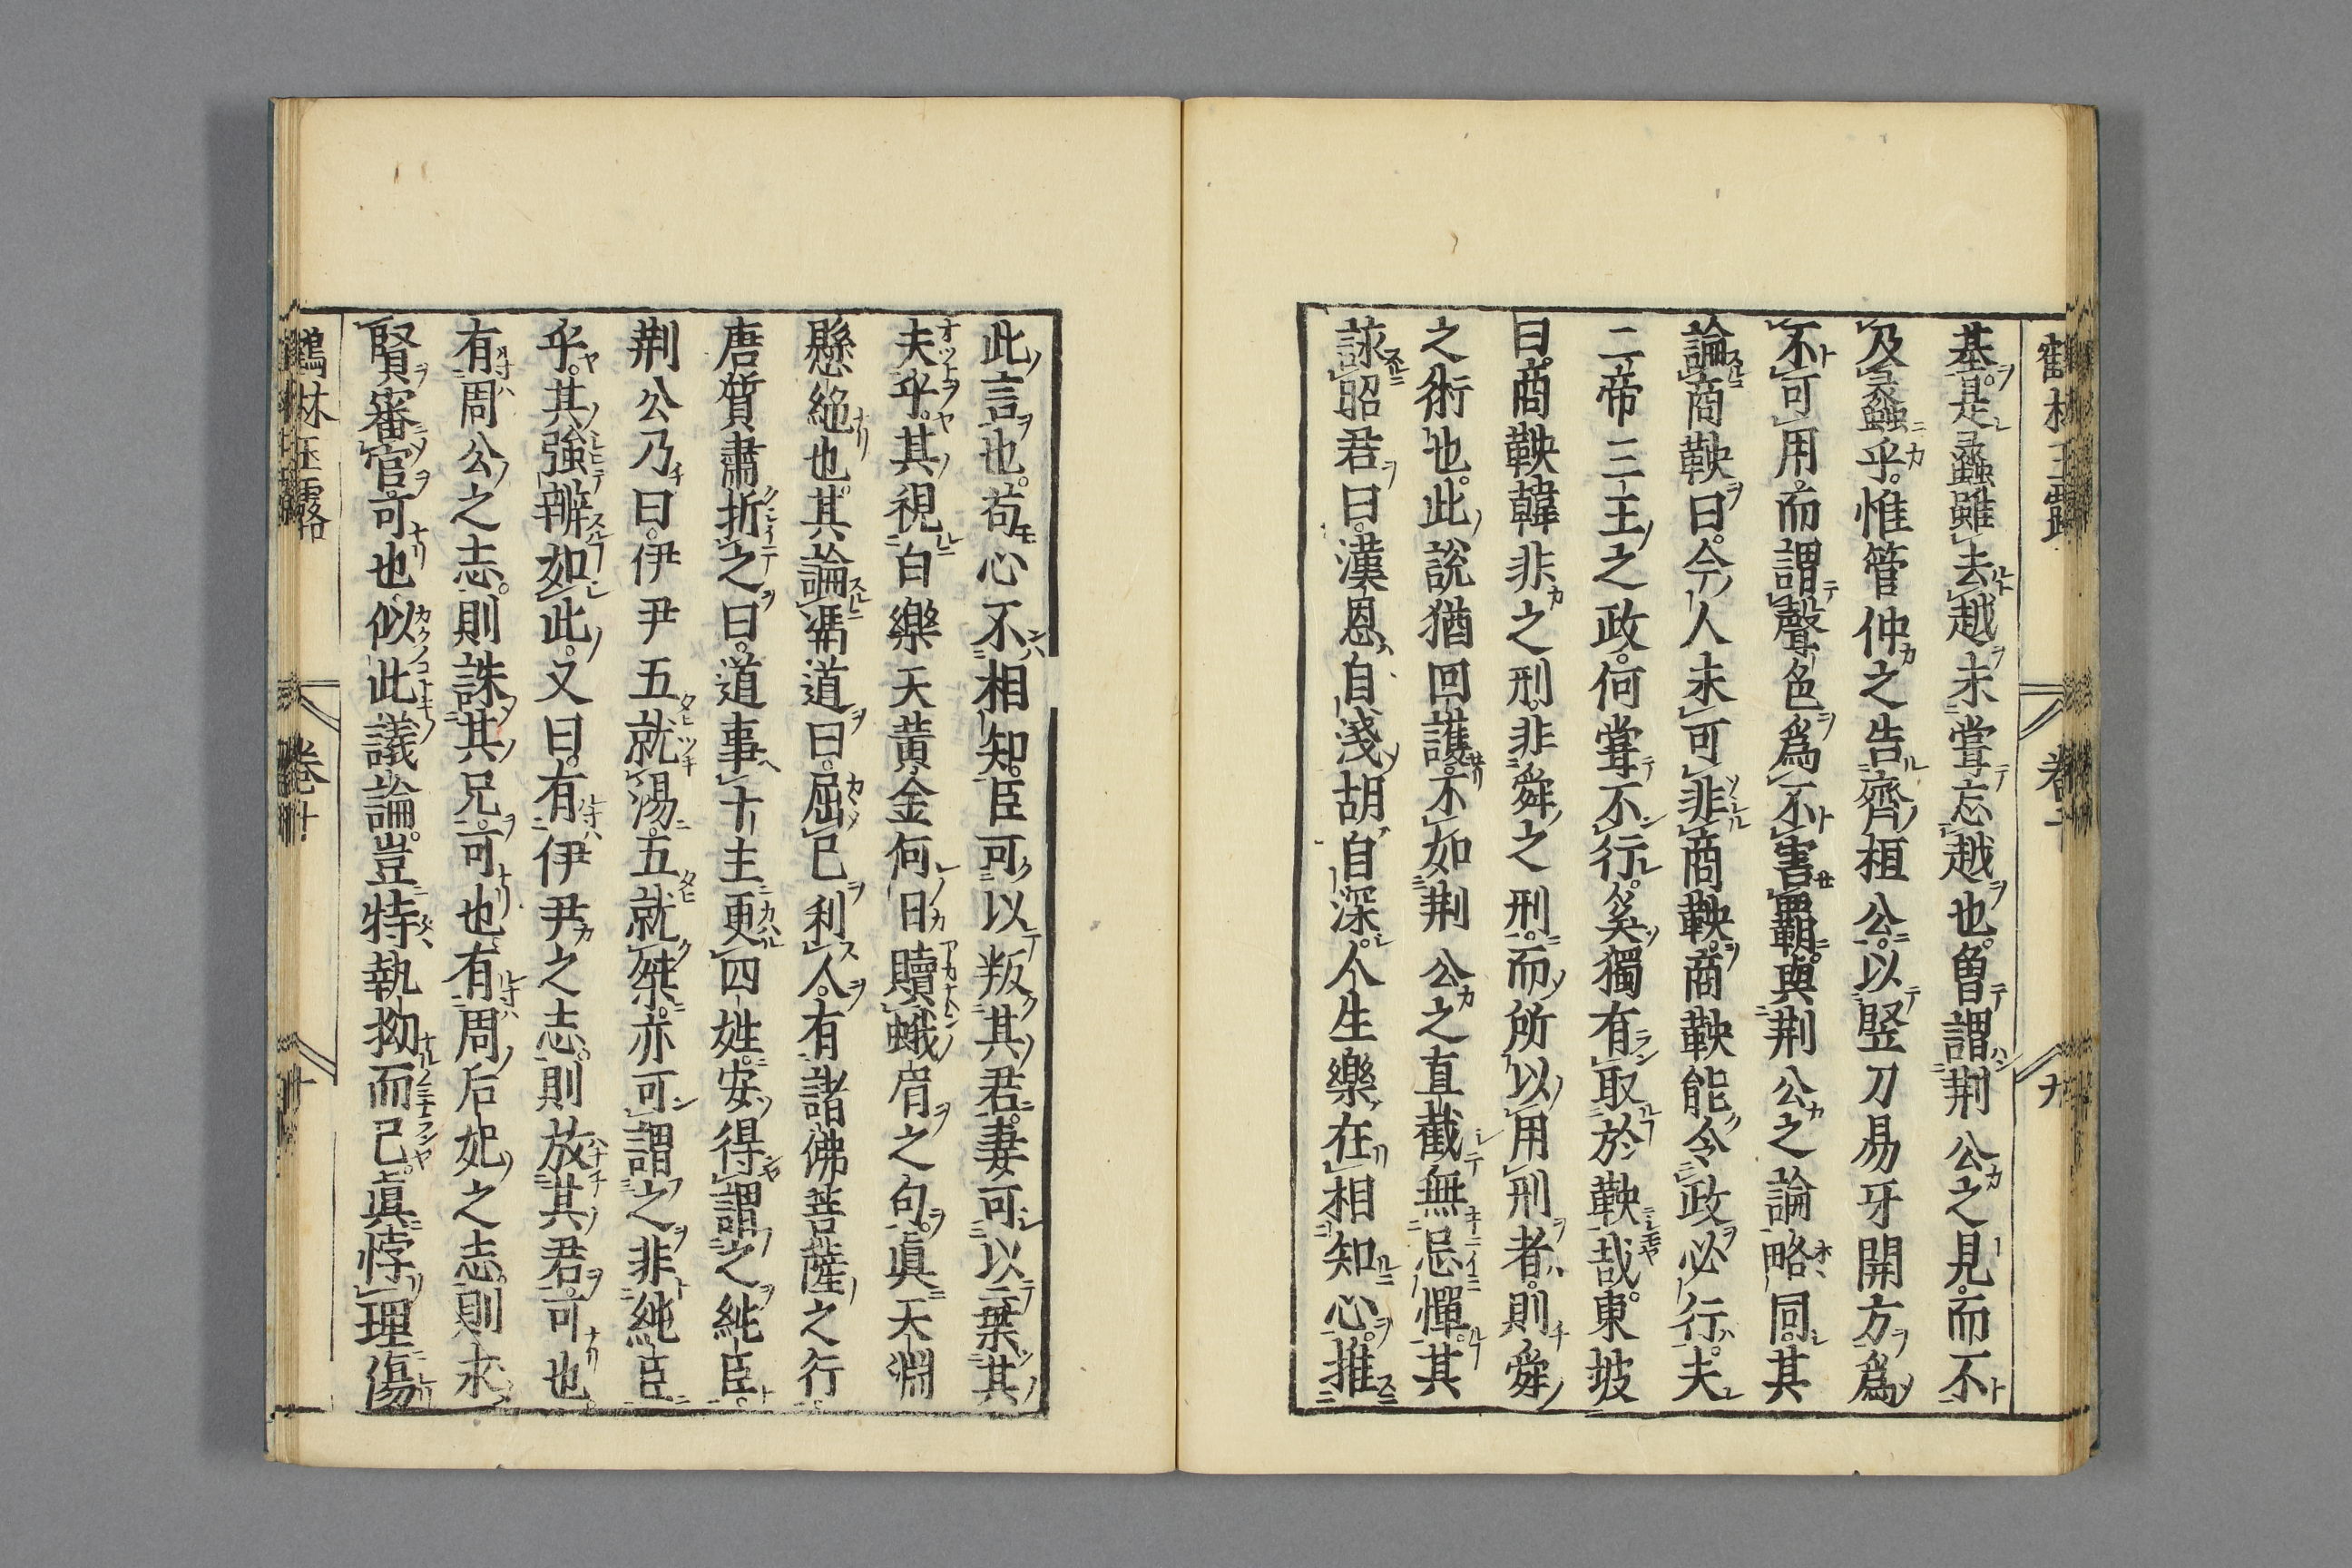 鶴林玉露 卷十 九
基。是蠡雖去越未嘗忘越也。曾謂荆公之見。而不
及蠡乎。惟管仲之告齊桓公。以竪刀易牙開方爲
不可用。而謂聲色爲不害覇。與荆公之論略同。其
論商鞅曰。今人未可非商鞅。商鞅能令政必行。夫
二帝三王之政。何嘗不行。奚獨有取於鞅哉。東坡
曰。商鞅韓非之刑。非舜之刑。而所以用刑者。則舜
之術也。此説猶回護。不如荆公之直截無忌憚。其
詠昭君曰。漢恩自淺胡自深。人生樂在相知心。推
此言也。苟心不相知。臣可以叛其君。妻可以棄其
夫乎。其視白樂天黄金何日贖蛾眉之句。眞天淵
懸絶也。其論馮道曰。屈已利人。有諸佛菩薩之行。
唐質肅折之曰。道事十主更四姓。安得謂之純臣。
荆公乃曰。伊尹五就湯。五就桀。亦可謂之非純臣
乎。其強辨如此。又曰。有伊尹之志。則放其君。可也
有周公之志。則誅其兄。可也。有周后妃之志。則求
賢審官。可也。似此議論。豈特執拗而已。眞悖理傷
鶴林玉露 卷十 十